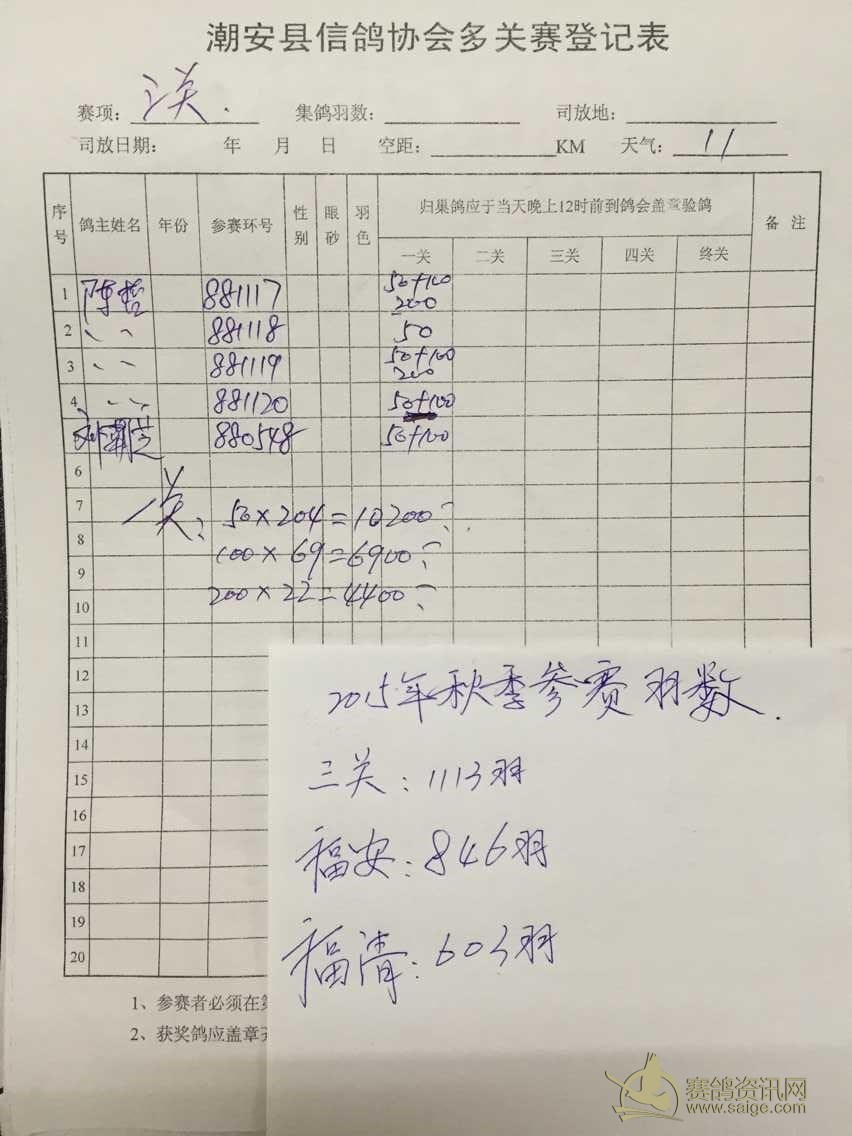 潮安县信鸽协会多关赛登记表
赛项: 三关. 集鸽羽数: 司放地:
司放日期: 年 月 日 空距: KM 天气: 11
序号 鸽主姓名 年份 参赛环号 性别 眼砂 羽色 归巢鸽应于当天晚上12时前到鸽会盖章验鸽 备注
一关 二关 三关 四关 终关
1 陈哲 881117 50+100 200
2 〃 881118 50
3 〃 881119 50+100 200
4 〃 881120 50+100
880548 50+100
6
7 一关: 50×204=10200
8 100×69=6900
9
10 200×22=4400
11
12
13
14
15
16
17
18
19
20
2015年秋季参赛羽数.
三关: 1113羽
福安: 846羽
福清: 603羽
1、参赛者必须在
2、获奖鸽应盖章
赛鸽资讯网
www.saige.com